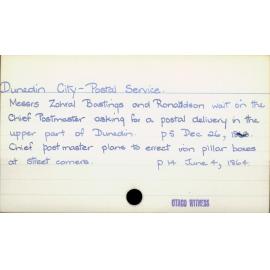 Dunedin City - Postal Service.
Messrs Zohrab Bastings and Ronaldson wait on the
Chief Postmaster asking for a postal delivery in the
upper part of Dunedin. p 5 Dec 26,
Chief postmaster plans to errect iron pillar boxes
at street corners. p 14 June 4, 1864.
OTAGO WITNESS